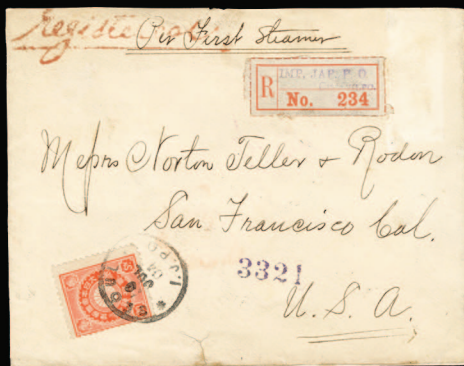 Registered
Per First Steamer
R
IMP. JAP. P. O.
No. 234
Messrs Norton Teller & Rodon
San Francisco Cal.
3321
U. S. A.
I.J.P.O